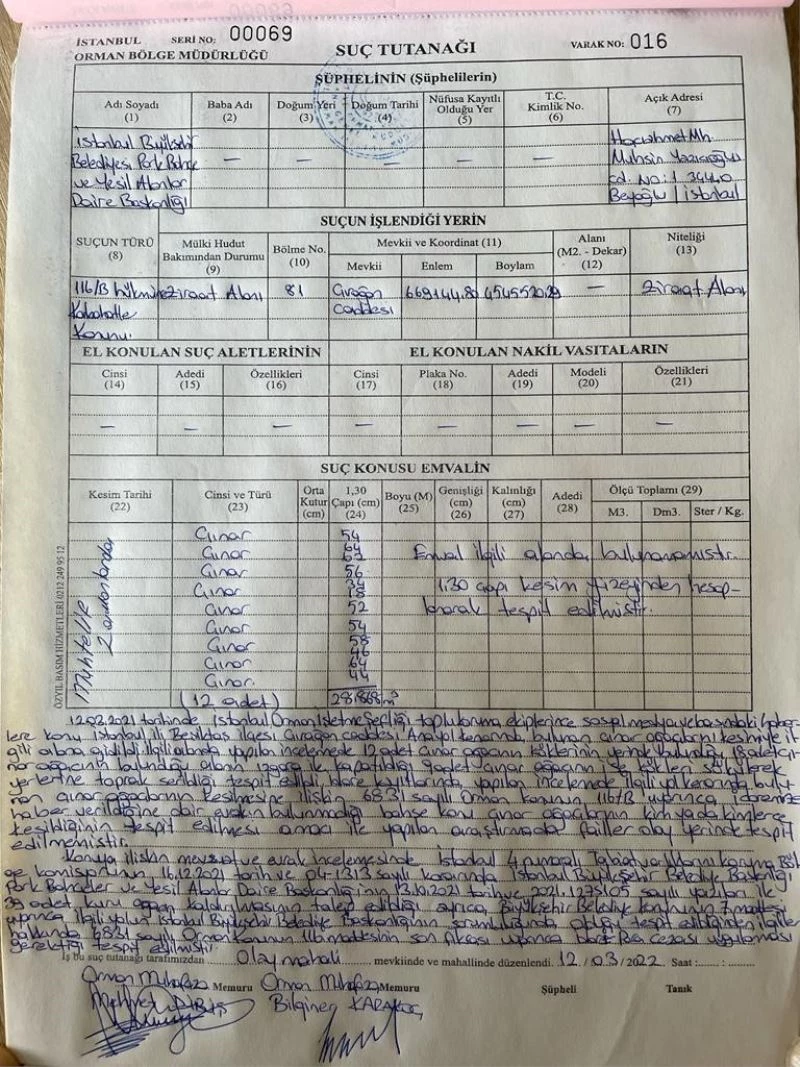 İSTANBUL SERİ NO: 00069
ORMAN BÖLGE MÜDÜRLÜĞÜ
SUÇ TUTANAĞI
VARAK NO: 016
ŞÜPHELİNİN (Şüphelilerin)
Adı Soyadı (1) Baba Adı (2) Doğum Yeri (3) Doğum Tarihi (4) Nüfusa Kayıtlı Olduğu Yer (5) T.C. Kimlik No. (6) Açık Adresi (7)
İstanbul Büyükşehir Hacıahmet Mh.
Belediyesi Park Bahçe — — — — — Muhsin Yazıcıoğlu
ve Yeşil Alanlar cd. No:1 34440
Daire Başkanlığı Beyoğlu / İstanbul
SUÇUN İŞLENDİĞİ YERİN
SUÇUN TÜRÜ (8) Mülki Hudut Bakımından Durumu (9) Bölme No. (10) Mevkii ve Koordinat (11) Alanı (M2. - Dekar) (12) Niteliği (13)
Mevkii Enlem Boylam
116/B Ziraat Alanı 81 Çırağan 669144.80 4545520.29 — Ziraat Alanı
Kabahatle Caddesi
Konu.
EL KONULAN SUÇ ALETLERİNİN EL KONULAN NAKİL VASITALARIN
Cinsi (14) Adedi (15) Özellikleri (16) Cinsi (17) Plaka No. (18) Adedi (19) Modeli (20) Özellikleri (21)
— — — — — — — —
SUÇ KONUSU EMVALİN
Kesim Tarihi (22) Cinsi ve Türü (23) Orta Kutur (cm) 1,30 Çapı (cm) (24) Boyu (M) (25) Genişliği (cm) (26) Kalınlığı (cm) (27) Adedi (28) Ölçü Toplamı (29)
M3. Dm3. Ster / Kg.
Muhtelif zamanlarda
Çınar 54
Çınar 64 Emval ilgili alanda bulunamamıştır.
62
Çınar 56
Çınar 34 1.30 çapı kesim yüzeyinden hesap-
18
Çınar 52 lanarak tespit edilmiştir.
Çınar 54
Çınar 58
Çınar 46
Çınar 64
Çınar 44
(12 adet) 28.868 m³
ÖZYIL BASIM HİZMETLERİ 0212 249 95 12
12.03.2021 tarihinde, İstanbul Orman İşletme Şefliği toplu koruma ekiplerince sosyal medya ve basındaki haber-
lere konu İstanbul ili Beşiktaş ilçesi Çırağan caddesi Anayol kenarında bulunan çınar ağaçlarını kesimiyle il-
gili alana gidildi. İlgili alanda yapılan incelemede 12 adet çınar ağacının köklerinin yerinde bulunduğu 18 adet çı-
nar ağacının bulunduğu alanın ızgara ile kapatıldığı 9 adet çınar ağacının ise kökleri sökülerek
yerlerine toprak serildiği tespit edildi. İdare kayıtlarında yapılan incelemede ilgili yol kenarında bulu-
nan çınar ağaçlarının kesilmesine ilişkin 6831 sayılı Orman kanunu 116/B uyarınca idaremize
haber verildiğine dair evrakın bulunmadığı bahse konu çınar ağaçlarının kim yada kimlerce
kesildiğinin tespit edilmesi amacı ile yapılan araştırmada failler olay yerinde tespit
edilmemiştir.
Konuya ilişkin mevzuat ve evrak incelemesinde İstanbul 4 numaralı Tabiat varlıklarını koruma Böl-
ge komisyonunun 16.12.2021 tarih ve 04-1313 sayılı kararında İstanbul Büyükşehir Belediye Başkanlığı
Park Bahçeler ve Yeşil Alanlar Daire Başkanlığı'nın 13.10.2021 tarih ve 2021.1275105 sayılı yazıları ile
39 adet kuru ağaçın kaldırılmasının talep edildiği ayrıca, Büyükşehir Belediye kanununun 7.maddesi
uyarınca ilgili yolun İstanbul Büyükşehir Belediye Başkanlığının sorumluluğunda olduğu tespit edildiğinden ilgililer
hakkında 6831 sayılı Orman Kanunun 116 maddesinin son fıkrası uyarınca İdari Para cezası uygulanması
gerektiği tespit edilmiştir.
İş bu suç tutanağı tarafımızdan Olay mahali mevkiinde ve mahallinde düzenlendi. 12 / 03 / 2022 Saat :......:......
Orman Muhafaza Memuru Orman Muhafaza Memuru Şüpheli Tanık
Mehmet Bilginer KARAKOÇ